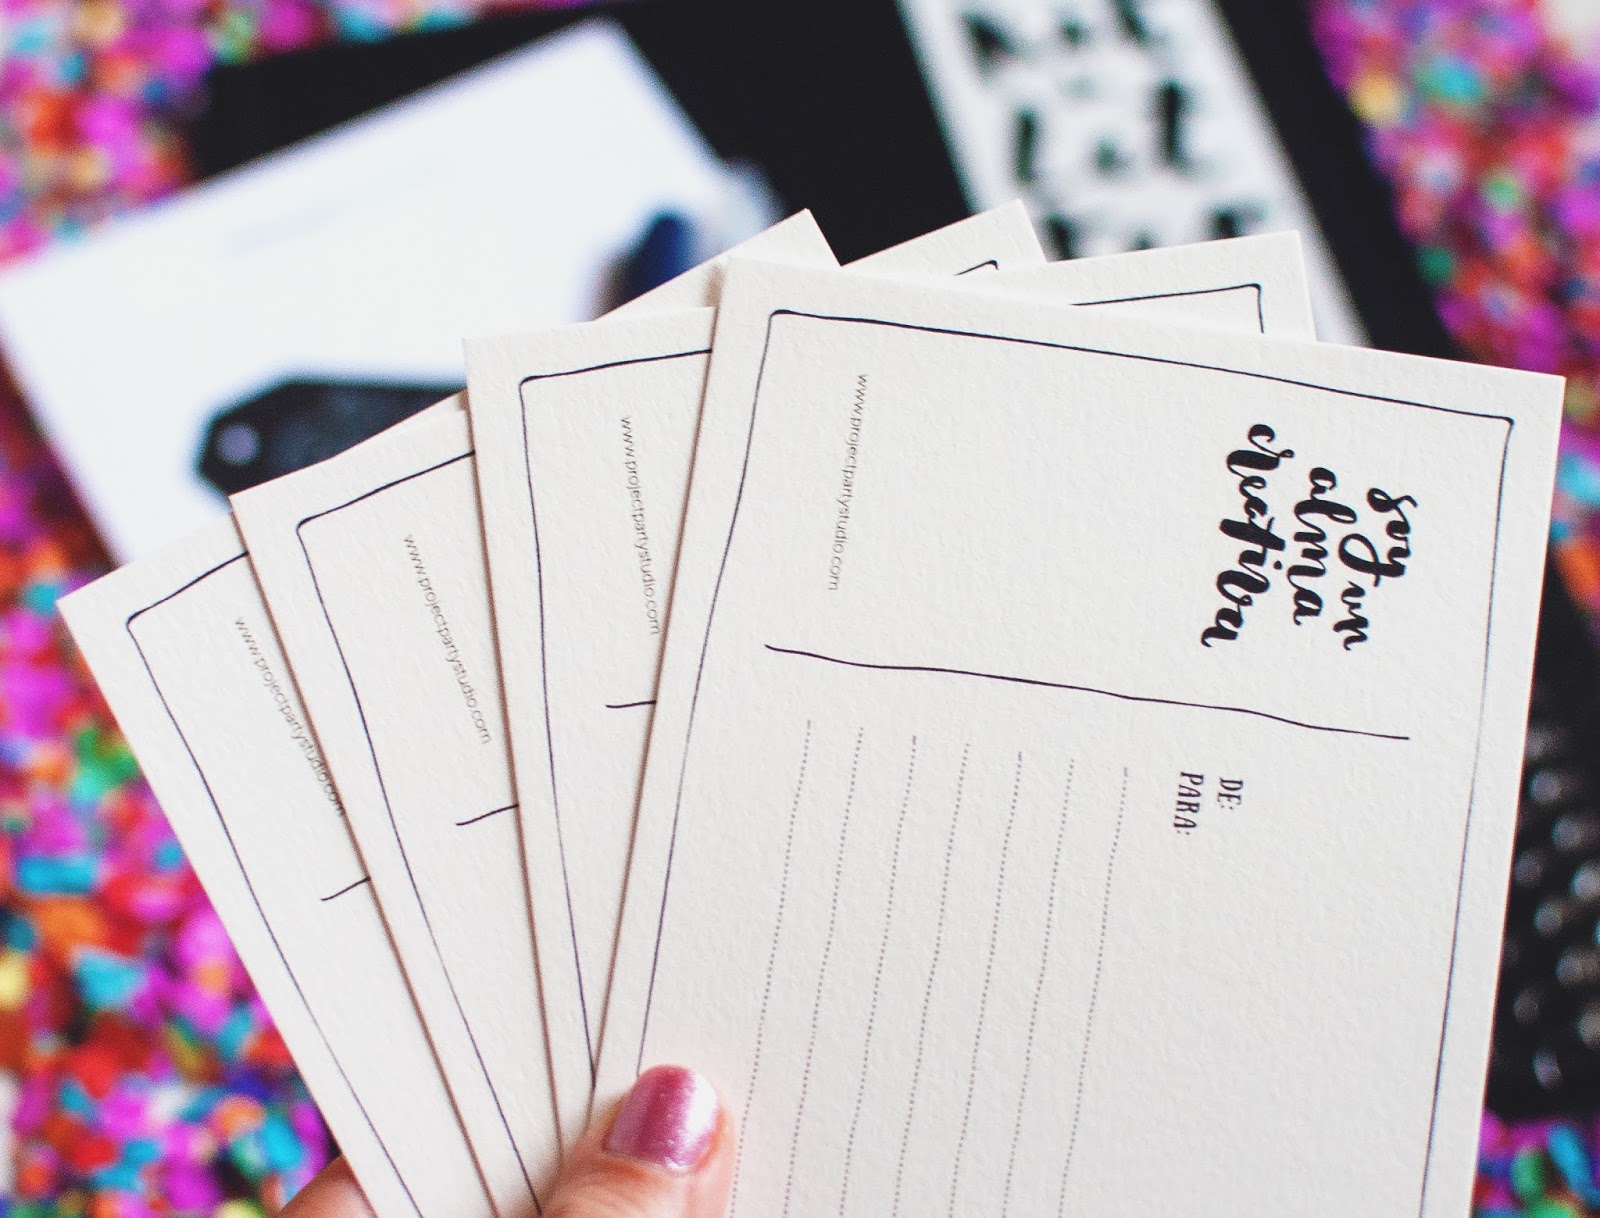 soy un
alma
creativa
DE:
PARA:
www.projectpartystudio.com
www.projectpartystudio.com
www.projectpartystudio.com
www.projectpartystudio.com